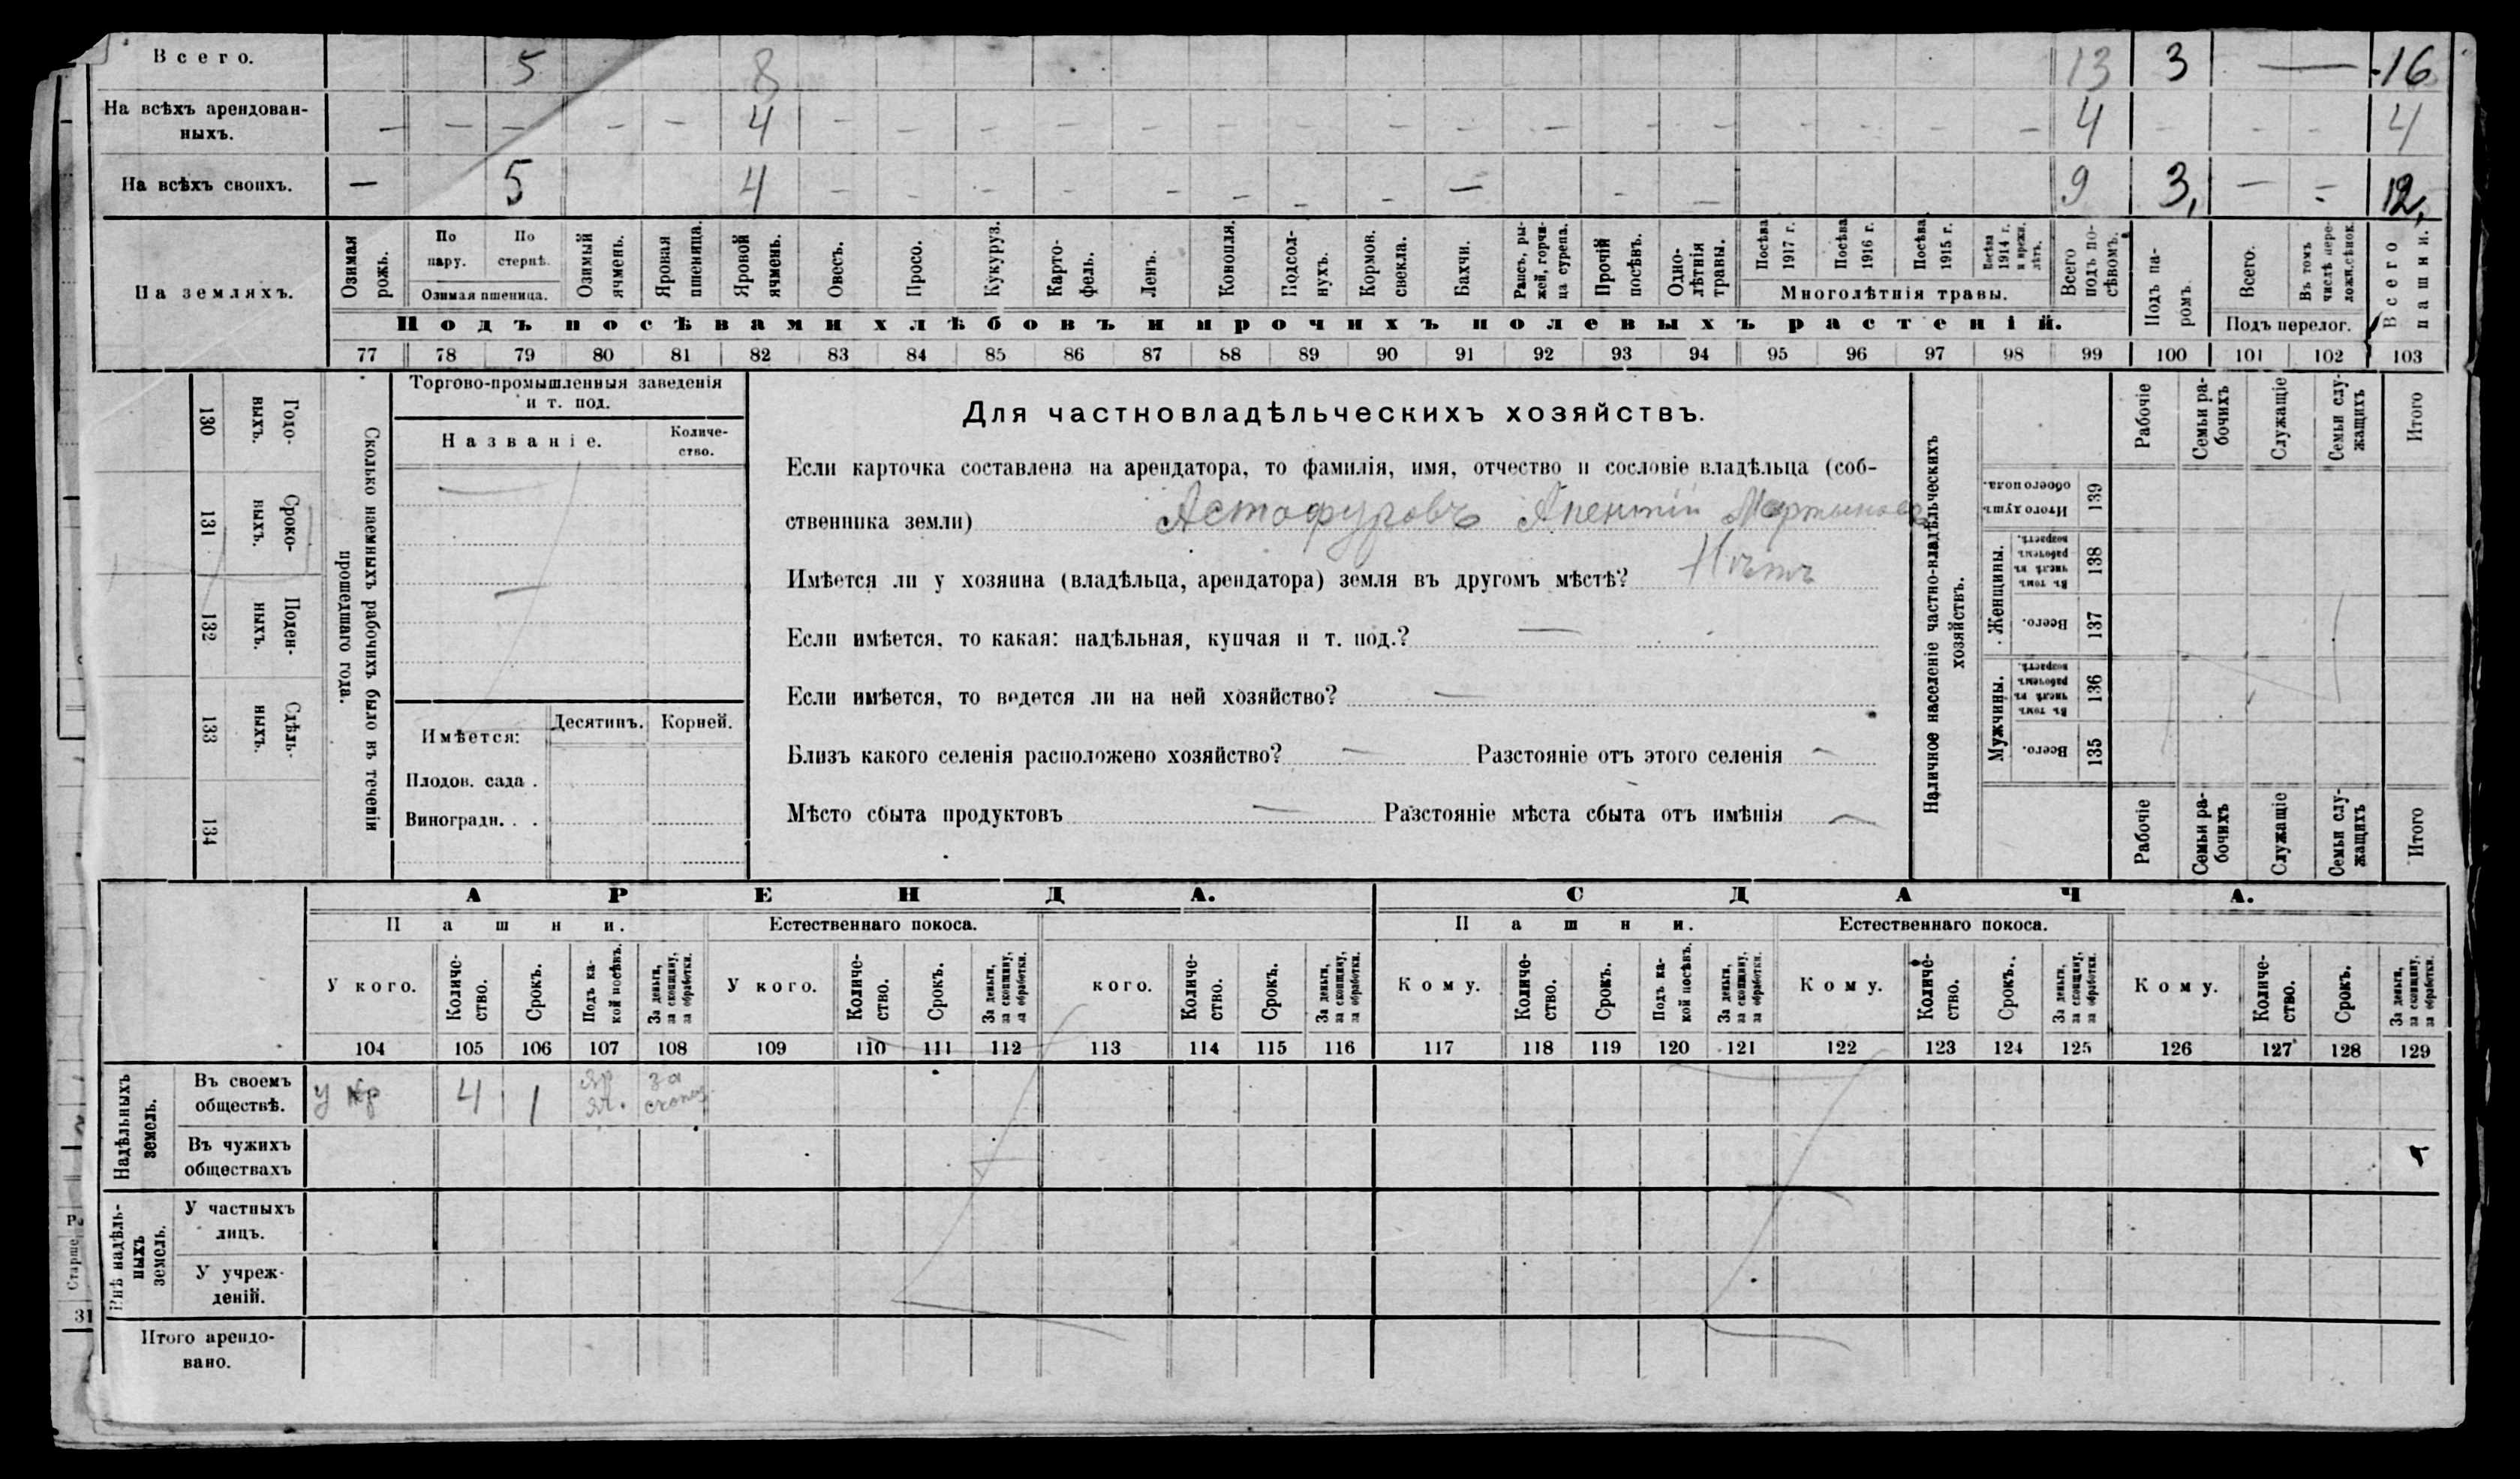 Всего. 5 8 13 3 — 16
На всѣхъ арендован-
ныхъ. — — — — — 4 — — — — — — — — — — — — — 4 — — — 4
На всѣхъ своихъ. — 5 4 — — — — — — — — — — — 9 3, — — 12,
На земляхъ.
Озимая рожь.
По пару.
По стернѣ.
Озимая пшеница.
Озимый ячмень.
Яровая пшеница.
Яровой ячмень.
Овесъ.
Просо.
Кукуруз.
Карто-
фель.
Ленъ.
Конопля.
Подсол-
нухъ.
Кормов. свекла.
Бахчи.
Рапсъ, ры-
жей, горчи-
ца сурепа.
Прочій посѣвъ.
Одно-
лѣтнія травы.
Посѣва 1917 г.
Посѣва 1916 г.
Посѣва 1915 г.
Посѣва 1914 г. и прежн. лѣтъ.
Многолѣтнія травы.
Всего подъ по-
сѣвомъ.
Подъ па-
ромъ.
Всего.
Въ томъ числѣ пере-
ложн. сѣнок.
Подъ перелог.
Всего пашни.
Подъ посѣвами хлѣбовъ и прочихъ полевыхъ растеній.
77 78 79 80 81 82 83 84 85 86 87 88 89 90 91 92 93 94 95 96 97 98 99 100 101 102 103
130 Годо-
выхъ.
131 Сроко-
ныхъ.
132 Поден-
ныхъ.
133 Сдѣль-
ныхъ.
134
Сколько наемныхъ рабочихъ было въ теченіи
прошедшаго года.
Торгово-промышленныя заведенія
и т. под.
Названіе.
Количе-
ство.
Имѣется: Десятинъ. Корней.
Плодов. сада .
Виноградн. . .
Для частновладѣльческихъ хозяйствъ.
Если карточка составлена на арендатора, то фамилія, имя, отчество и сословіе владѣльца (соб-
ственника земли) Астафуровъ
Имѣется ли у хозяина (владѣльца, арендатора) земля въ другомъ мѣстѣ? Нѣтъ
Если имѣется, то какая: надѣльная, купчая и т. под.? —
Если имѣется, то ведется ли на ней хозяйство? —
Близъ какого селенія расположено хозяйство? — Разстояніе отъ этого селенія —
Мѣсто сбыта продуктовъ — Разстояніе мѣста сбыта отъ имѣнія —
Наличное населеніе частно-владѣльческихъ
хозяйствъ.
Рабочіе
Семьи ра-
бочихъ
Служащіе
Семьи слу-
жащихъ
Итого
Итого душъ обоего пола. 139
Женщины.
Въ томъ числѣ въ рабочемъ возрастѣ. 138
Всего. 137
Мужчины.
Въ томъ числѣ въ рабочемъ возрастѣ. 136
Всего. 135
Рабочіе
Семьи ра-
бочихъ
Служащіе
Семьи слу-
жащихъ
Итого
АРЕНДА. СДАЧА.
Пашни. Естественнаго покоса. Пашни. Естественнаго покоса.
У кого.
Количе-
ство.
Срокъ.
Подъ ка-
кой посѣвъ.
За деньги, за скопщину, за обработки.
У кого.
Количе-
ство.
Срокъ.
За деньги, за скопщину, за обработки.
кого.
Количе-
ство.
Срокъ.
За деньги, за скопщину, за обработки.
Кому.
Количе-
ство.
Срокъ.
Подъ ка-
кой посѣвъ.
За деньги, за скопщину, за обработки.
Кому.
Количе-
ство.
Срокъ.
За деньги, за скопщину, за обработки.
Кому.
Количе-
ство.
Срокъ.
За деньги, за скопщину, за обработки.
104 105 106 107 108 109 110 111 112 113 114 115 116 117 118 119 120 121 122 123 124 125 126 127 128 129
Надѣльныхъ
земель.
Въ своемъ
обществѣ. у кр 4 1 яр яч. за скопщ.
Въ чужихъ
обществахъ
Внѣ надѣль-
ныхъ
земель.
У частныхъ
лицъ.
У учреж-
деній.
Итого арендо-
вано.
Старше
31